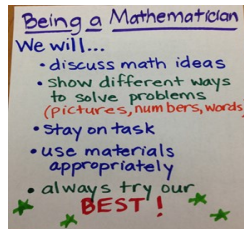 Being a Mathematician
We will...
• discuss math ideas
• show different ways
to solve problems
(pictures, numbers, words)
• stay on task
• use materials
appropriately
• always try our
BEST!